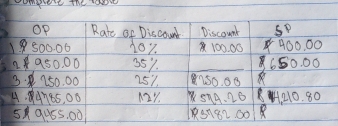 Complete the table
OP Rate of Discount Discount SP
1 ₱ 500.00 20% ₱ 100.00 ₱ 400.00
2. ₱ 950.00 35% ₱ 650.00
3. ₱ 250.00 25% ₱ 250.00 ₱
4. ₱ 4785.00 12% ₱ 574.20 ₱ 4210.80
5 ₱ 9,455.00 ₱ 3782.00 ₱